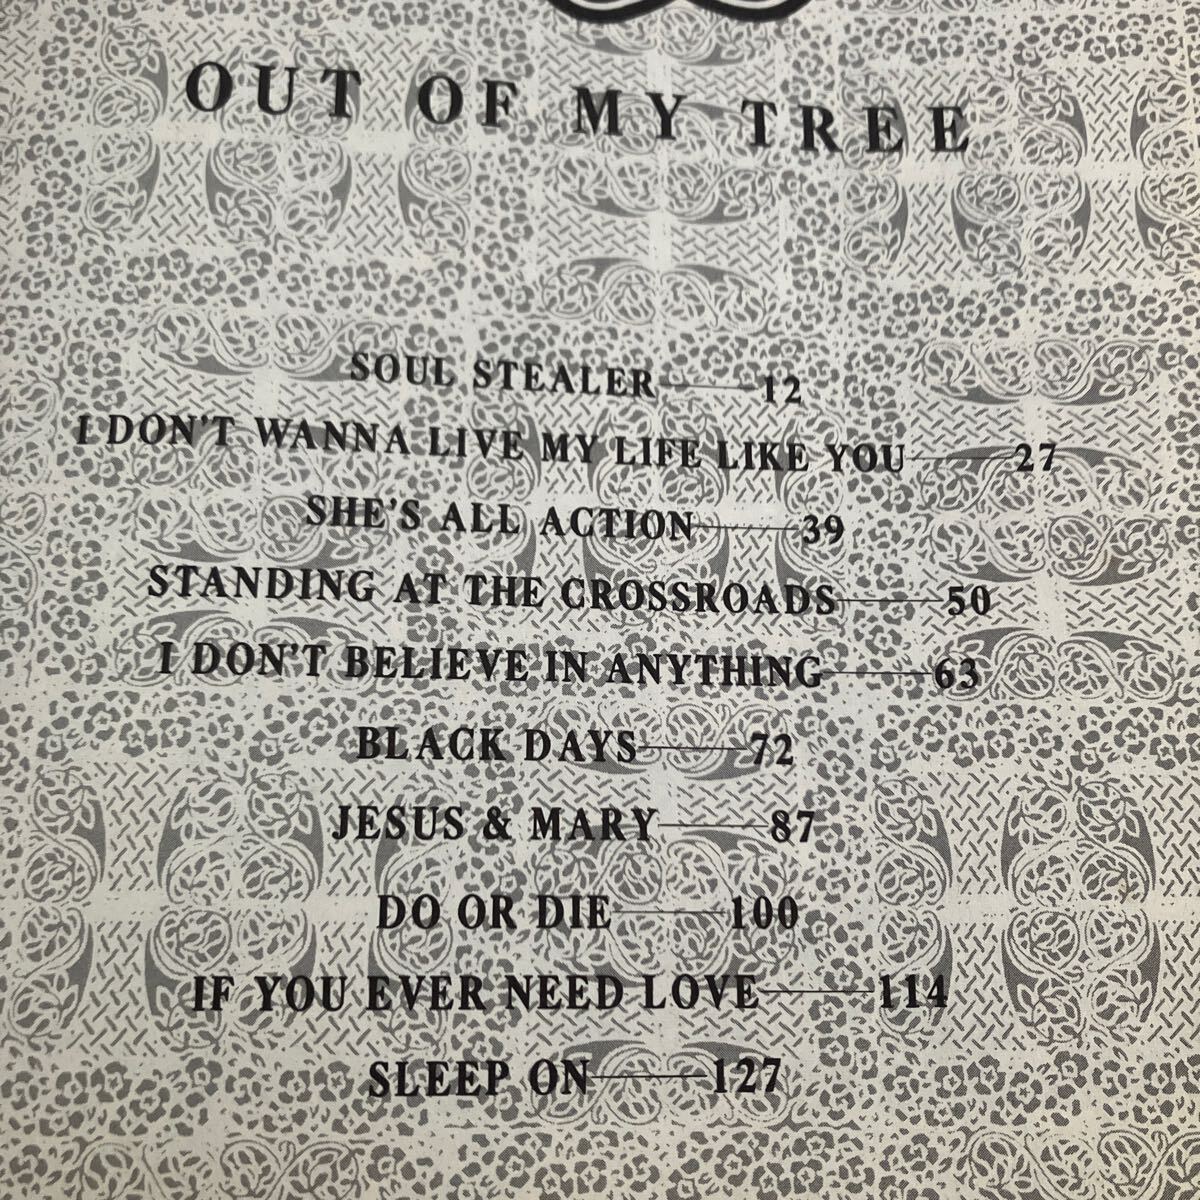 OUT OF MY TREE
SOUL STEALER——12
I DON'T WANNA LIVE MY LIFE LIKE YOU——27
SHE'S ALL ACTION——39
STANDING AT THE CROSSROADS——50
I DON'T BELIEVE IN ANYTHING——63
BLACK DAYS——72
JESUS & MARY——87
DO OR DIE——100
IF YOU EVER NEED LOVE——114
SLEEP ON——127